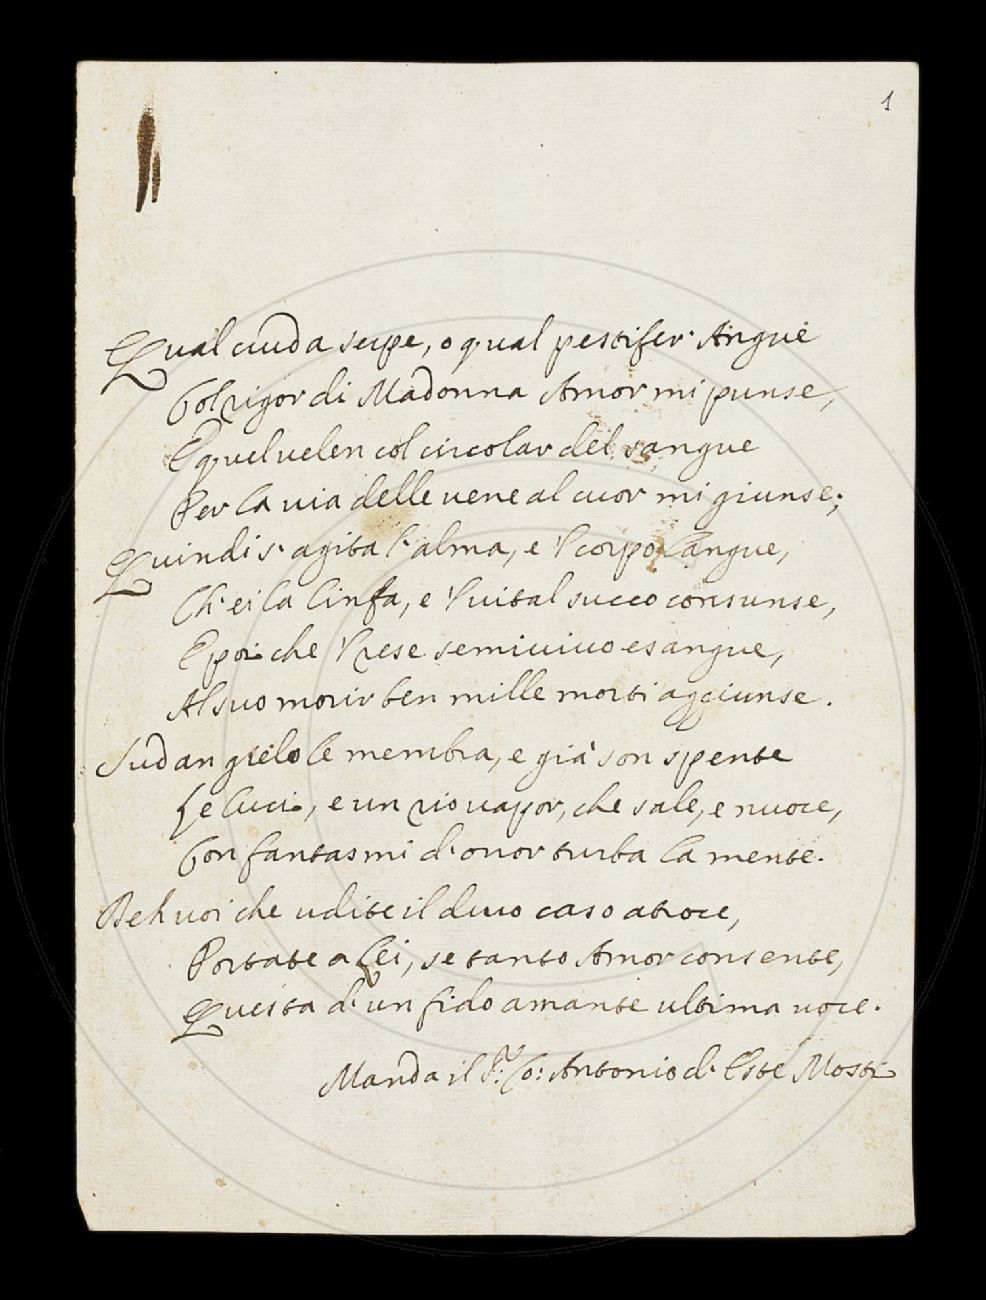 1
Qual cruda serpe, o qual pestifer' Angue
Col rigor di Madonna Amor mi punse,
E quel velen col circolar del sangue
Per la uia delle uene al cuor mi giunse;
Quindi s' agita l' alma, e 'l corpo langue,
Ch' ei la linfa, e 'l uital succo consunse,
E poi che 'l rese semiuiuo esangue,
Al suo morir ben mille morti aggiunse.
Sudan gielo le membra, e già son spente
Le luci, e un rio uapor, che sale, e nuoce,
Con fantasmi d' orror turba la mente.
Deh uoi che udite il duro caso atroce,
Portate a Lei, se tanto Amor consente,
Questa d' un fido amante ultima uoce.
Manda il S.r Co: Antonio d' Este Mosti